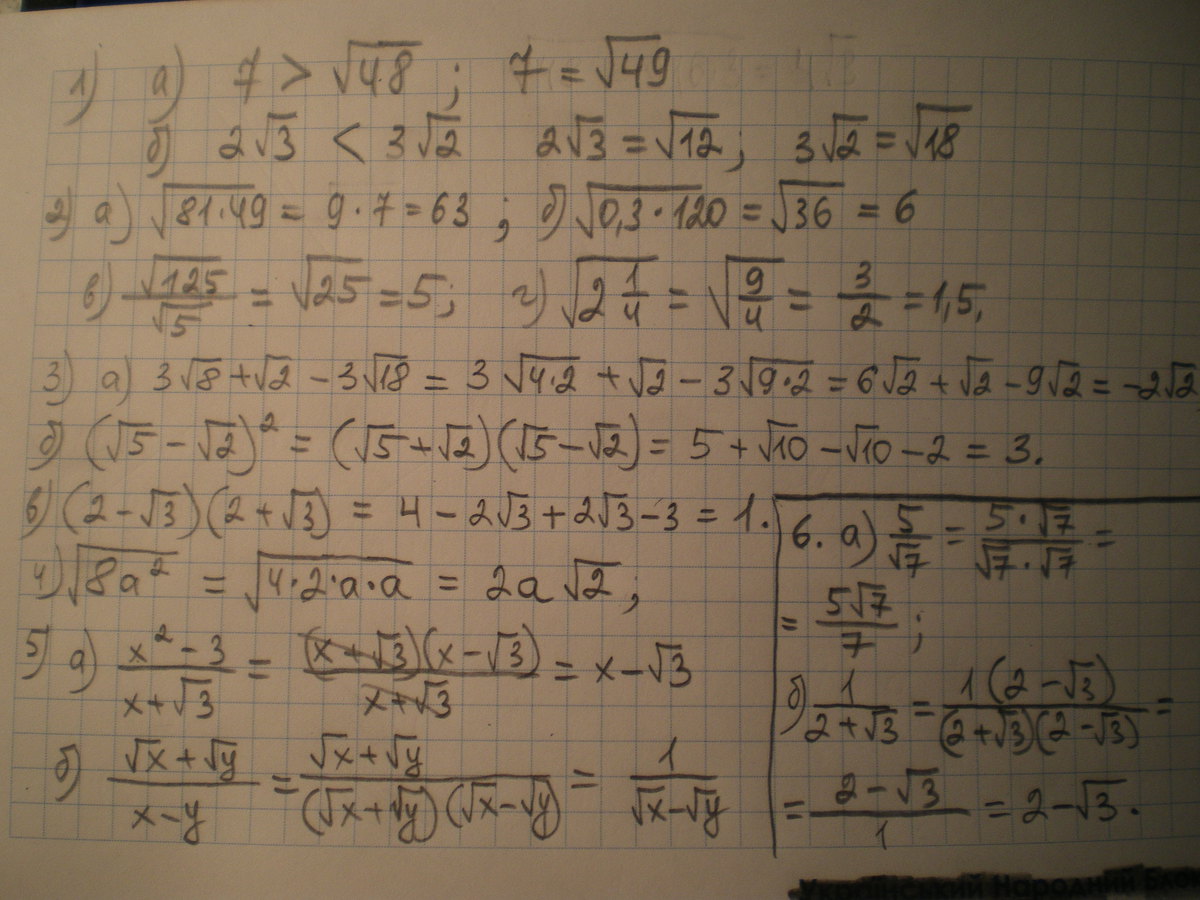 1) а) 7 > √48 ; 7 = √49
б) 2√3 < 3√2 2√3 = √12 ; 3√2 = √18
2) а) √(81·49) = 9·7 = 63 ; б) √(0,3·120) = √36 = 6
в) √125/√5 = √25 = 5; г) √(2 1/4) = √(9/4) = 3/2 = 1,5.
3) а) 3√8 + √2 - 3√18 = 3√(4·2) + √2 - 3√(9·2) = 6√2 + √2 - 9√2 = -2√2
б) (√5 - √2)² = (√5 + √2)(√5 - √2) = 5 + √10 - √10 - 2 = 3.
в) (2 - √3)(2 + √3) = 4 - 2√3 + 2√3 - 3 = 1.
4) √(8a²) = √(4·2·a·a) = 2a√2 ;
5) а) (x² - 3)/(x + √3) = ((x + √3)(x - √3))/(x + √3) = x - √3
б) (√x + √y)/(x - y) = (√x + √y)/((√x + √y)(√x - √y)) = 1/(√x - √y)
6. а) 5/√7 = (5·√7)/(√7·√7) =
= 5√7/7 ;
б) 1/(2 + √3) = 1(2 - √3)/((2 + √3)(2 - √3)) =
= (2 - √3)/1 = 2 - √3.
Український Народний Блок